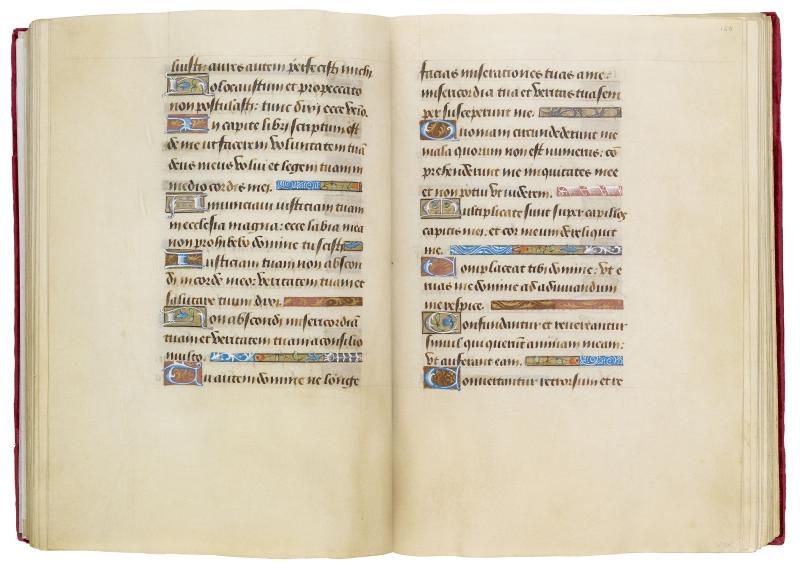 luisti: aures autem perfecisti michi
Holocaustum et pro peccato
non postulasti: tunc dixi ecce venio.
In capite libri scriptum est
de me ut facerem voluntatem tuã
deus meus volui et legem tuam in
medio cordis mei.
Annunciavi iusticiam tuam
in ecclesia magna: ecce labia mea
non prohibebo domine tu scisti
Iusticiam tuam non abscon
di in corde meo: veritatem tuam et
salutare tuum dixi.
Non abscondi misericordiã
tuam et veritatem tuam a consilio
multo.
Tu autem domine ne longe
154
facias miserationes tuas a me:
misericordia tua et veritas tua sem
per susceperunt me.
Quoniam circundederunt me
mala quorum non est numerus: cõ
prehenderunt me iniquitates mee
et non potui ut viderem.
Multiplicate sunt super capillos
capitis mei: et cor meum dereliquit
me.
Complaceat tibi domine: ut e
ruas me domine ad adiuvandum
me respice.
Confundantur et revereantur
simul qui querũt animam meam:
ut auferant eam.
Convertantur retrorsum et re